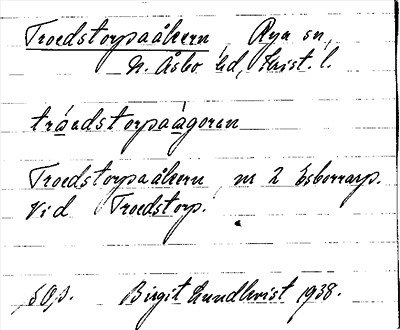 Troedstorpaåkern, Rya sn,
N. Åsbo hd, Krist. l.
tróedstorpaågoren
Troedstorpaåkern, nr 2 Esborrarp.
Vid Troedstorp.
Birgit Lundkvist 1938.